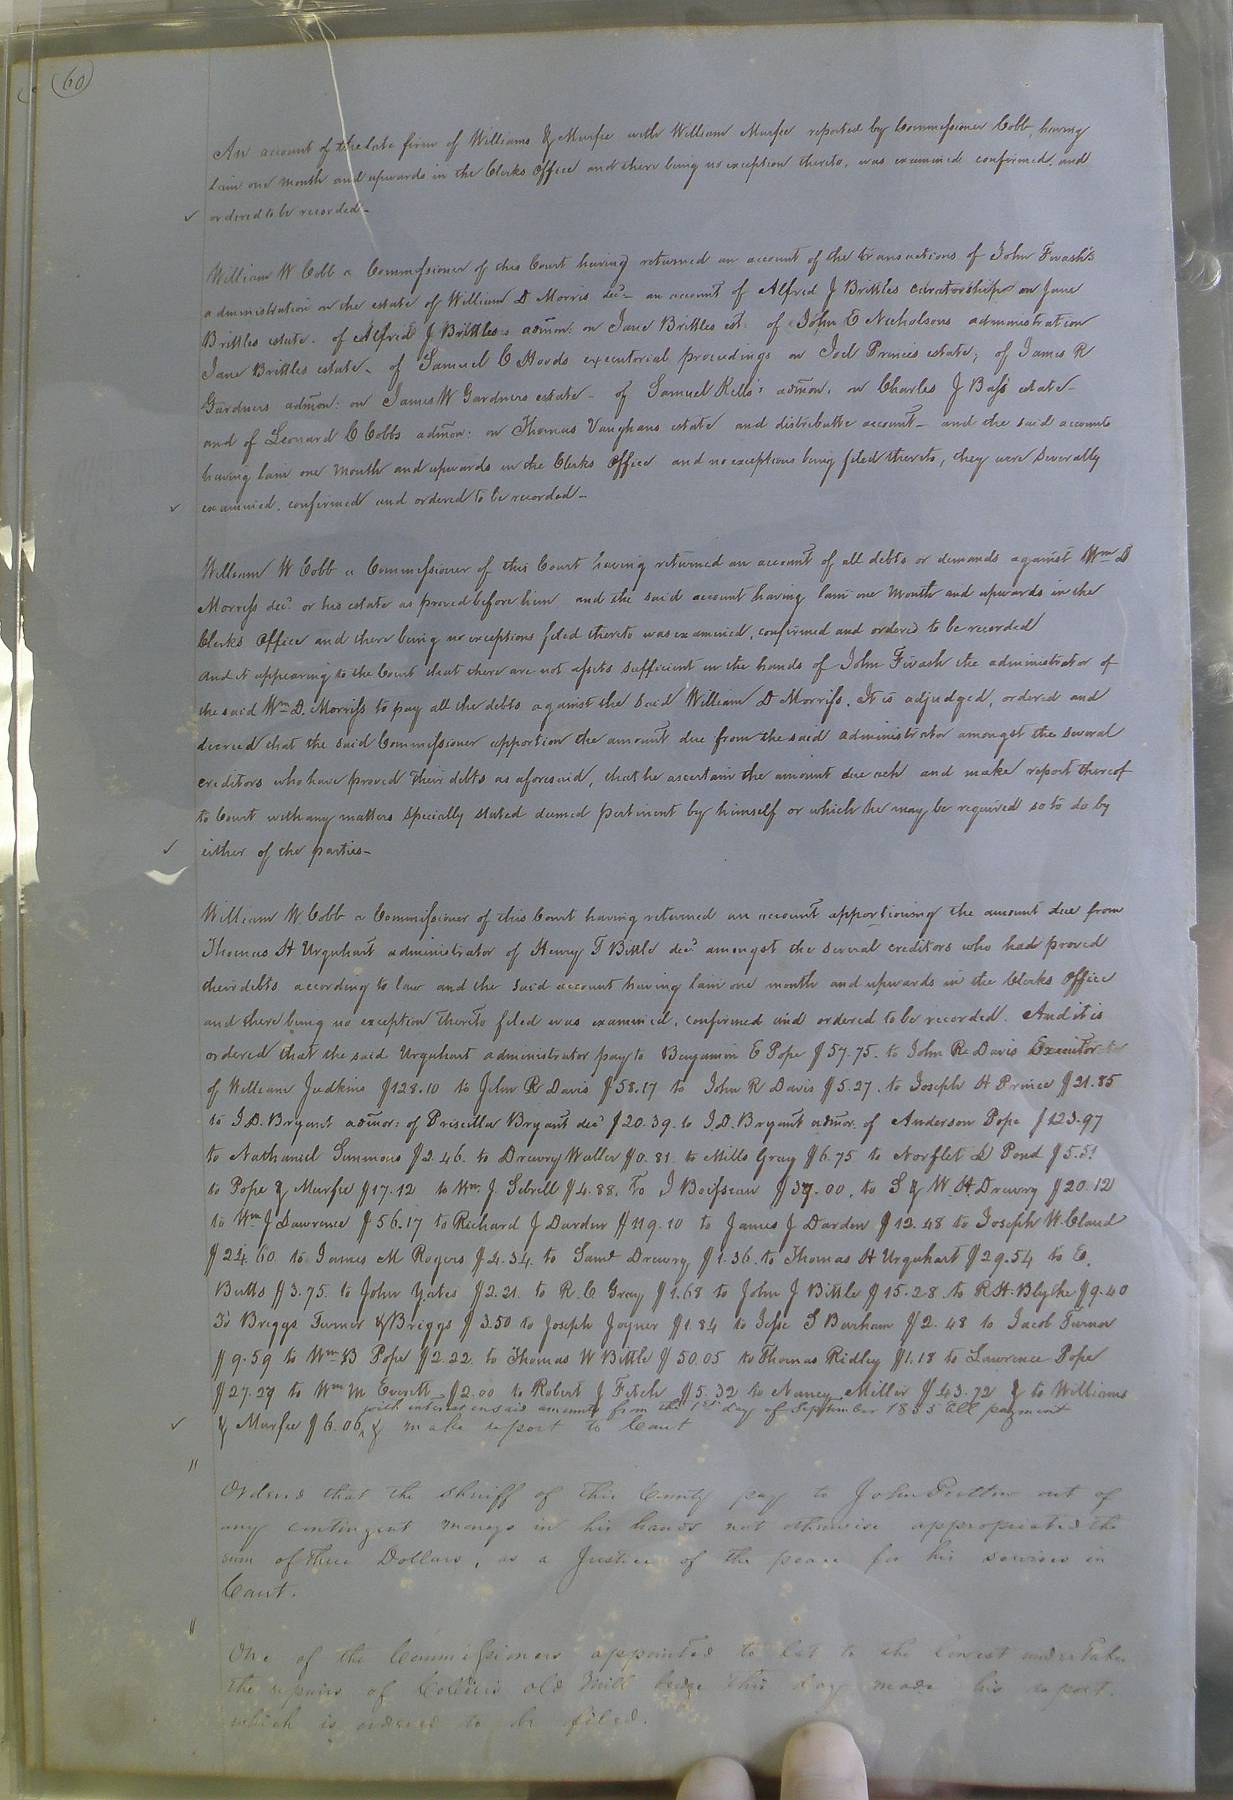 60
An account of the late firm of Williams & Murfee with William Murfee reported by Commissioner Cobb, having
lain one month and upwards in the Clerks Office and there being no exception thereto, was examined confirmed, and
✓ ordered to be recorded–
William W Cobb a Commissioner of this Court having returned an account of the transactions of John Fwash's
administration on the estate of William D Morris decd– an account of Alfred J Brittles curatorship on Jane
Brittles estate. of Alfred J Brittles admon: on Jane Brittles est: of John E Nicholsons administration
Jane Brittles estate– of Samuel C Hoods executorial proceedings on Joel Princes estate; of James R
Gardners admon: on James W Gardners estate– of Samuel Kello's admon. on Charles J Bass estate–
and of Leonard C Cobbs admon: on Thomas Vaughans estate and distributive account– and the said accounts
having lain one month and upwards in the Clerks Office and no exceptions being filed thereto, they were severally
✓ examined, confirmed and ordered to be recorded–
William W Cobb a Commissioner of this Court having returned an account of all debts or demands against Wm D
Morriss decd or his estate as proved before him, and the said account having lain one month and upwards in the
Clerks Office and there being no exceptions filed thereto was examined, confirmed and ordered to be recorded
And it appearing to the Court that there are not assets sufficient in the hands of John Fwash the administrator of
the said Wm D. Morriss to pay all the debts against the said William D Morriss. It is adjudged, ordered and
decreed that the said Commissioner apportion the amount due from the said administrator amongst the several
creditors who have proved their debts as aforesaid, that he ascertain the amount due each and make report thereof
to Court with any matters specially stated deemed pertinent by himself or which he may be required so to do by
✓ either of the parties–
William W Cobb a Commissioner of this Court having returned an account apportioning the amount due from
Thomas H Urquhart administrator of Henry T Bittle decd amongst the several creditors who had proved
their debts according to law and the said account having lain one month and upwards in the Clerks Office
and there being no exception thereto filed was examined, confirmed and ordered to be recorded. And it is
ordered that the said Urquhart administrator pay to Benjamin E Pope $57.75. to John R Davis Executor
of William Judkins $128.10 to John R Davis $58.17 to John R Davis $5.27. to Joseph H Prince $21.85
to J.D. Bryant admor: of Priscilla Bryant decd $20.39. to J.D. Bryant admor. of Anderson Pope $123.97
to Nathaniel Simmons $2.46. to Drewry Waller $0.81. to Mills Gray $6.75 to Norflet D Pond $5.51
to Pope & Murfee $17.12 to Wm. J. Sebrell $4.88, To J Boisseau $37.00, to S & W. H. Drewry $20.12
to Wm J Lawrence $56.17 to Richard J Darden $119.10 to James J Darden $12.48 to Joseph W. Claud
$24.60 to James M Rogers $4.34. to Saml Drewry $1.36. to Thomas H Urquhart $29.54 to E.
Butts $3.75. to John Yates $2.21. to R. C Gray $1.68 to John J Bittle $15.28. to R. H. Blythe $9.40
To Briggs Turner & Briggs $3.50 to Joseph Joyner $1.84 to Jesse S Barham $2.48 to Jacob Turner
$9.59 to Wm B Pope $2.22. to Thomas W Bittle $50.05 to Thomas Ridley $1.18 to Lawrence Pope
$27.27 to Wm M Everett $2.00 to Robert J Fitch $5.32 to Nancy Miller $43.72 & to Williams
with interest on said amounts from the 1st day of September 1855 till payment
✓ & Murfee $6.06, & make report to Court
" Ordered that the Sheriff of this County pay to John out of
any contingent moneys in his hands not otherwise appropriated the
sum of three Dollars, as a Justice of the peace for his services in
Court.
" One of the Commissioners appointed to let to the lowest undertaker
the repairs of old Mill bridge this day made his report.
which is ordered to be filed.